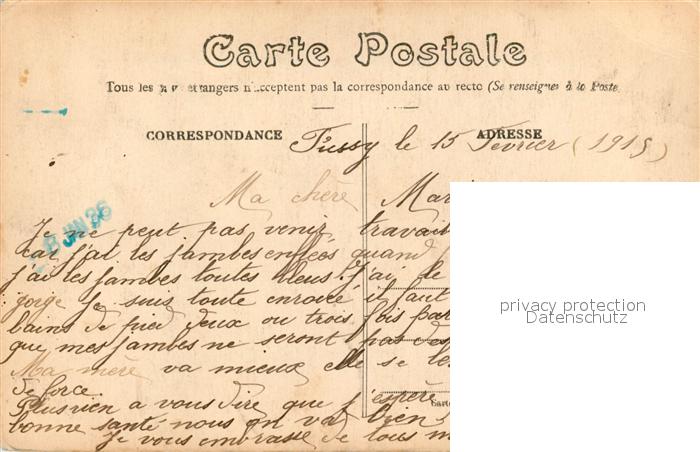 Carte Postale
Tous les étrangers n'acceptent pas la correspondance au recto (Se renseigner à la Poste
CORRESPONDANCE ADRESSE
Fussy le 15 Fevrier (1915)
Ma chère Mar
Je ne peut pas venir travail
car j'ai les jambes enflées quand
j'ai les jambes toutes bleus. J'ai de
gorge je suis toute enrouée il faut
bains de pied deux ou trois fois par
que mes jambes ne seront pas des
Ma mère va mieux elle se le
de force.
Plus rien a vous dire que j'espère
bonne santé nous on va bien
Je vous embrasse de tous m
Carte
privacy protection
Datenschutz